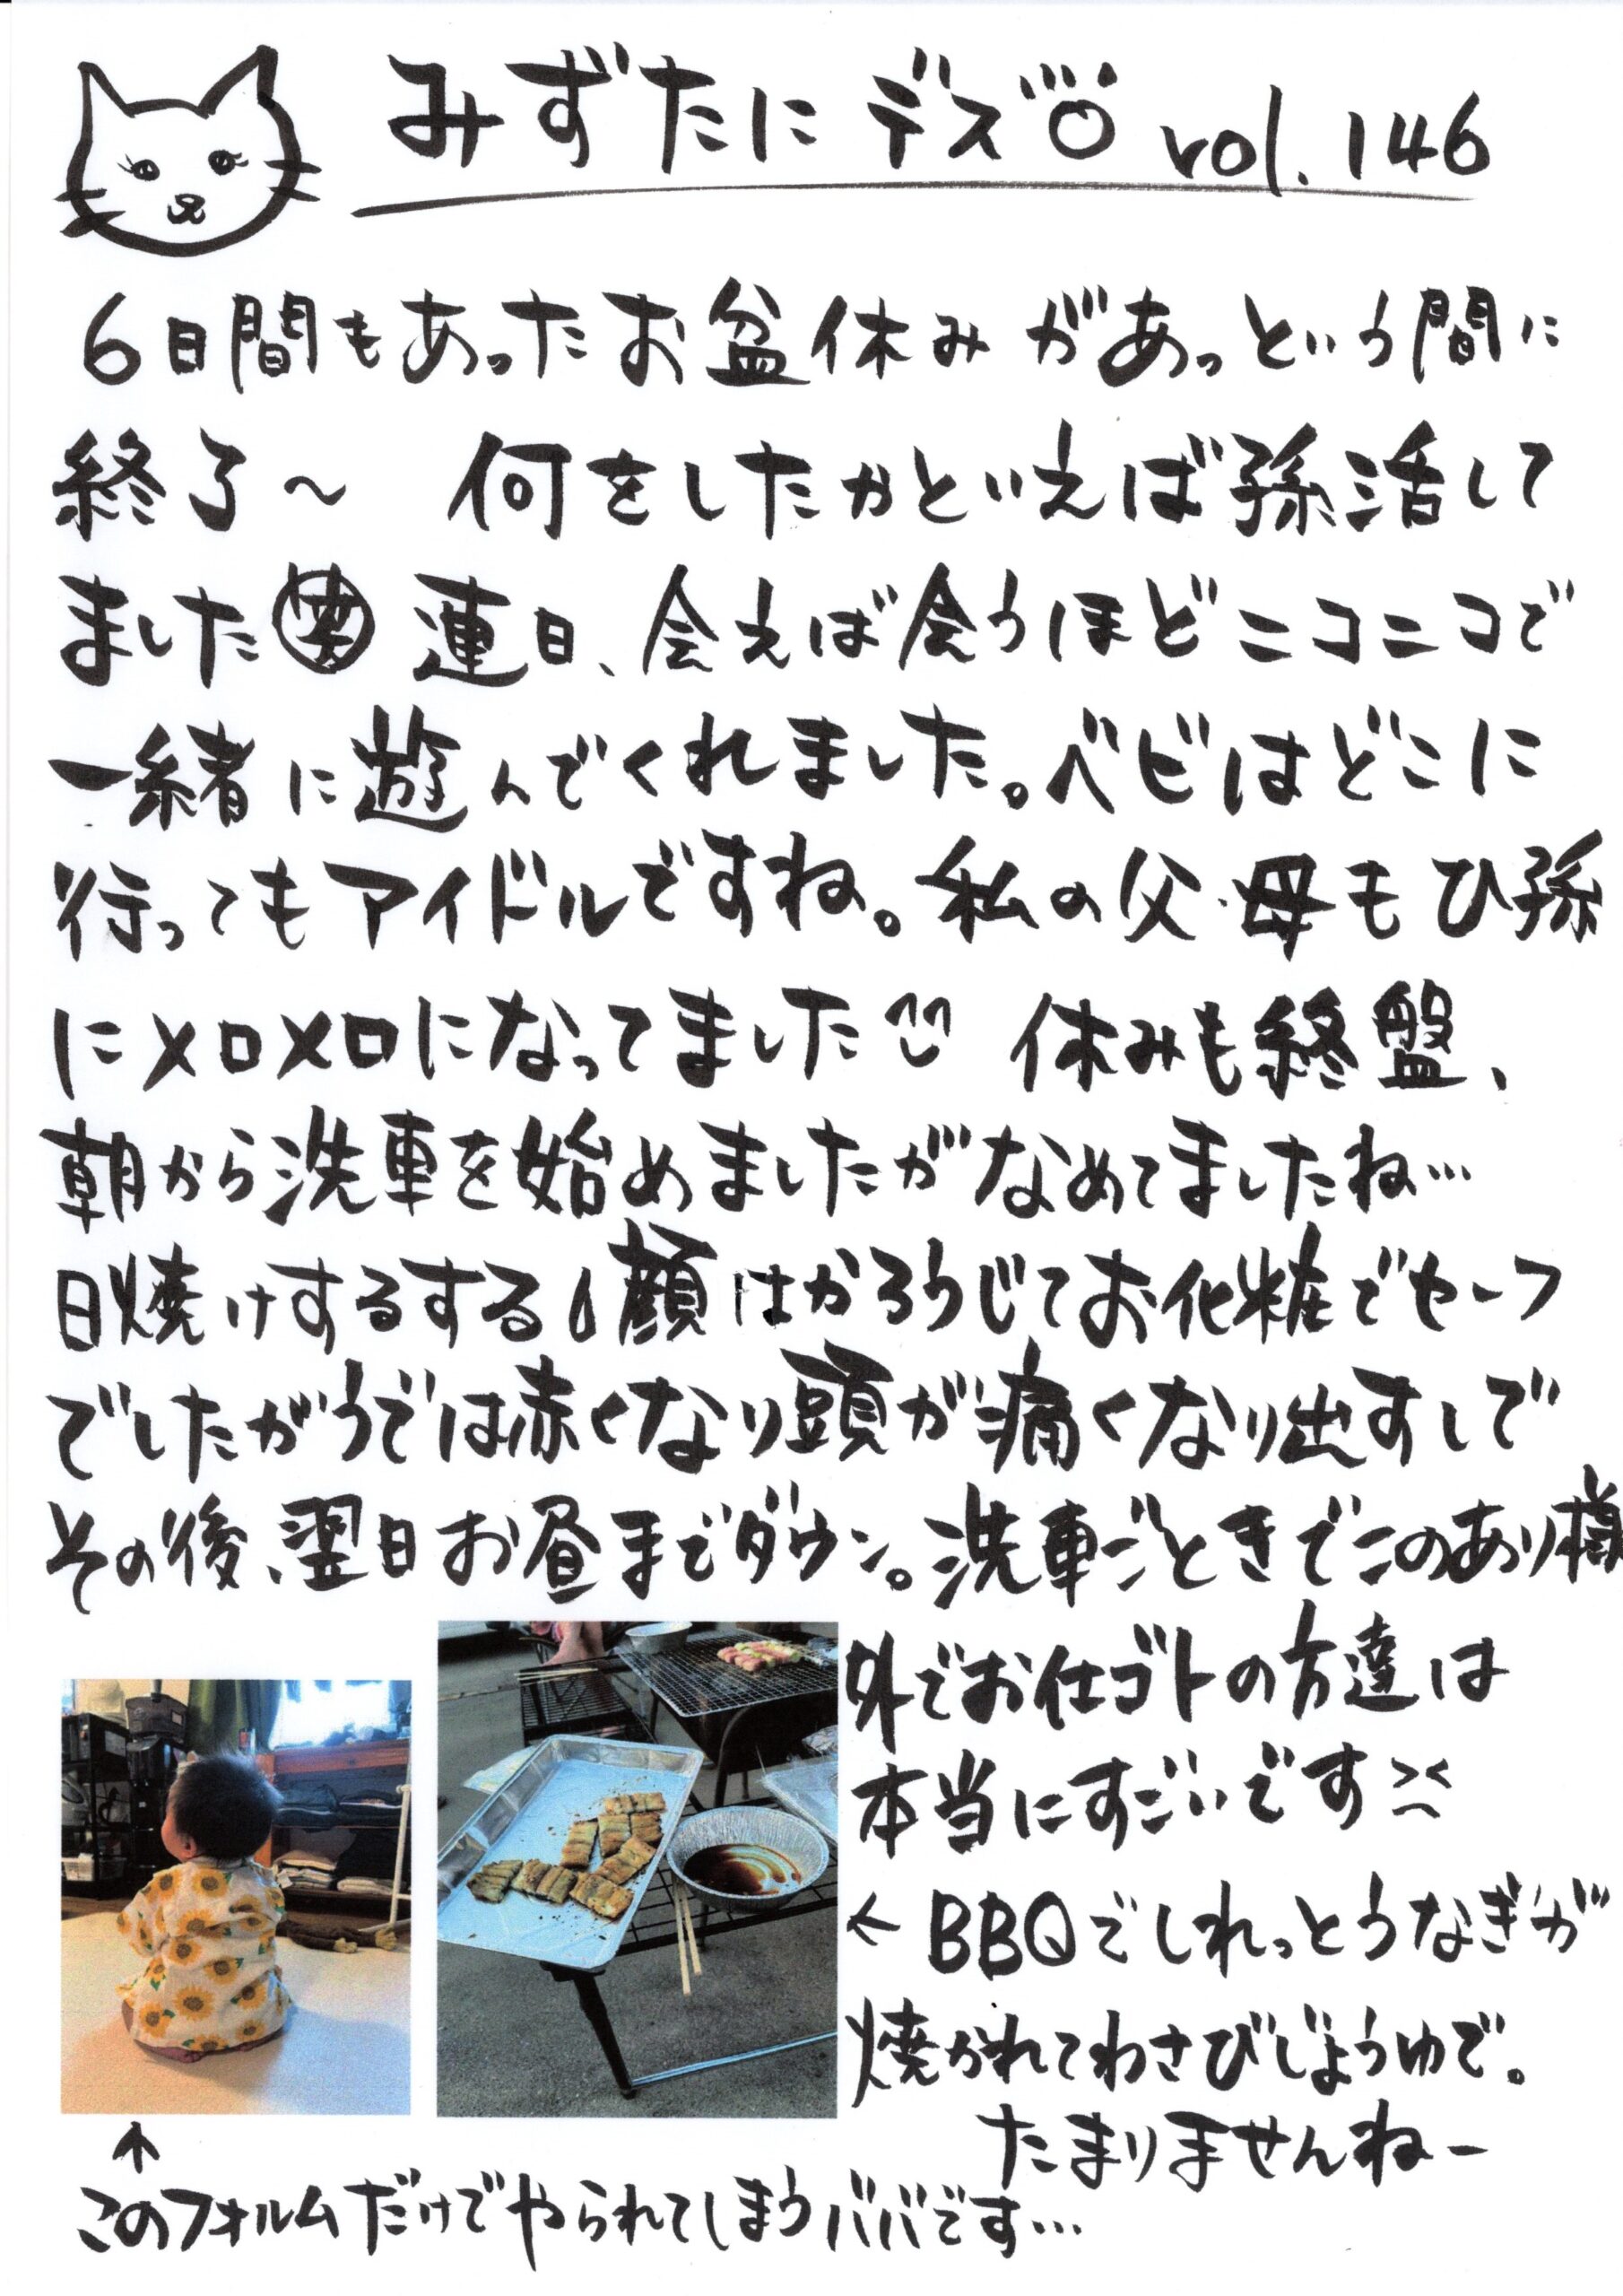 みずたにデスVol.146
6日間もあったお盆休みがあっという間に
終了～ 何をしたかといえば孫活して
ました㊤連日、会えば会うほどニコニコで
一緒に遊んでくれました。ベビはどこに
行ってもアイドルですね。私の父・母もひ孫
にメロメロになってました 休みも終盤、
朝から洗車を始めましたがなめてましたね…
日焼けするする 顔はかろうじてお化粧でセーフ
でしたがうでは赤くなり頭が痛くなり出すしで
その後、翌日お昼までダウン。洗車ごときでこのあり様
外でお仕ゴトの方達は
本当にすごいです><
← BBQでしれっとうなぎが
焼かれてわさびじょうゆで。
たまりませんねー
↑
このフォルムだけでやられてしまうババです…